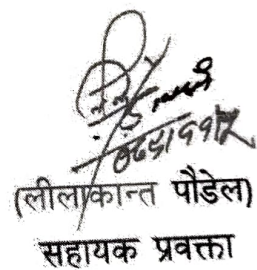 (लीलाकान्त पौडेल)
सहायक प्रवक्ता